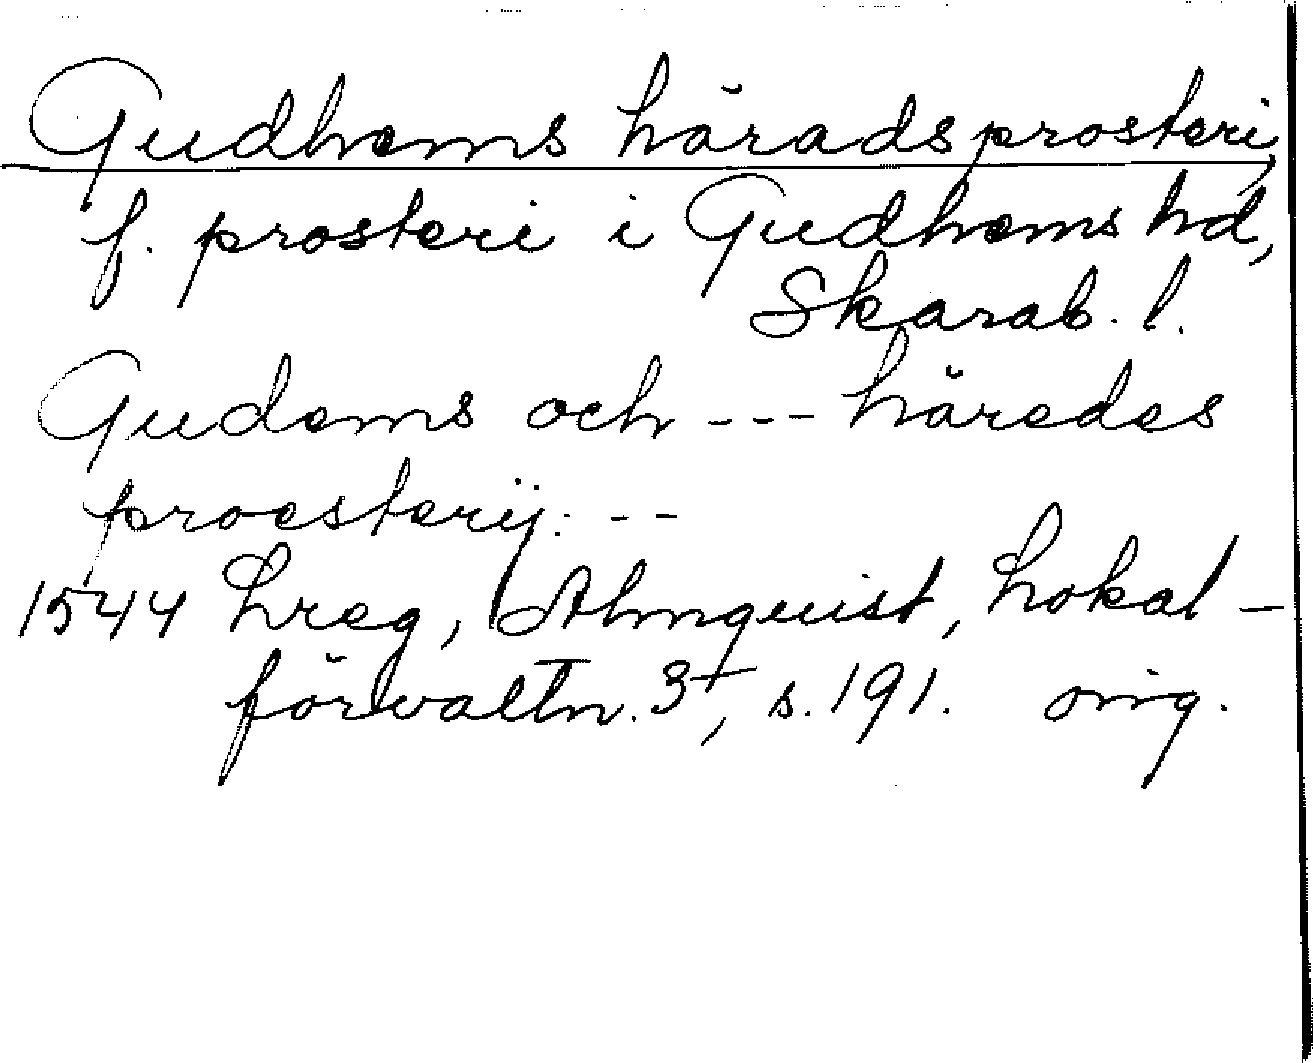 Gudhems häradsprosteri,
f. prosteri i Gudhems hd,
Skarab. l.
Gudems och --- häredes
proesterij. --
1544 Lreg, Almquist, Lokal-
förvaltn. 3, s. 191. orig.